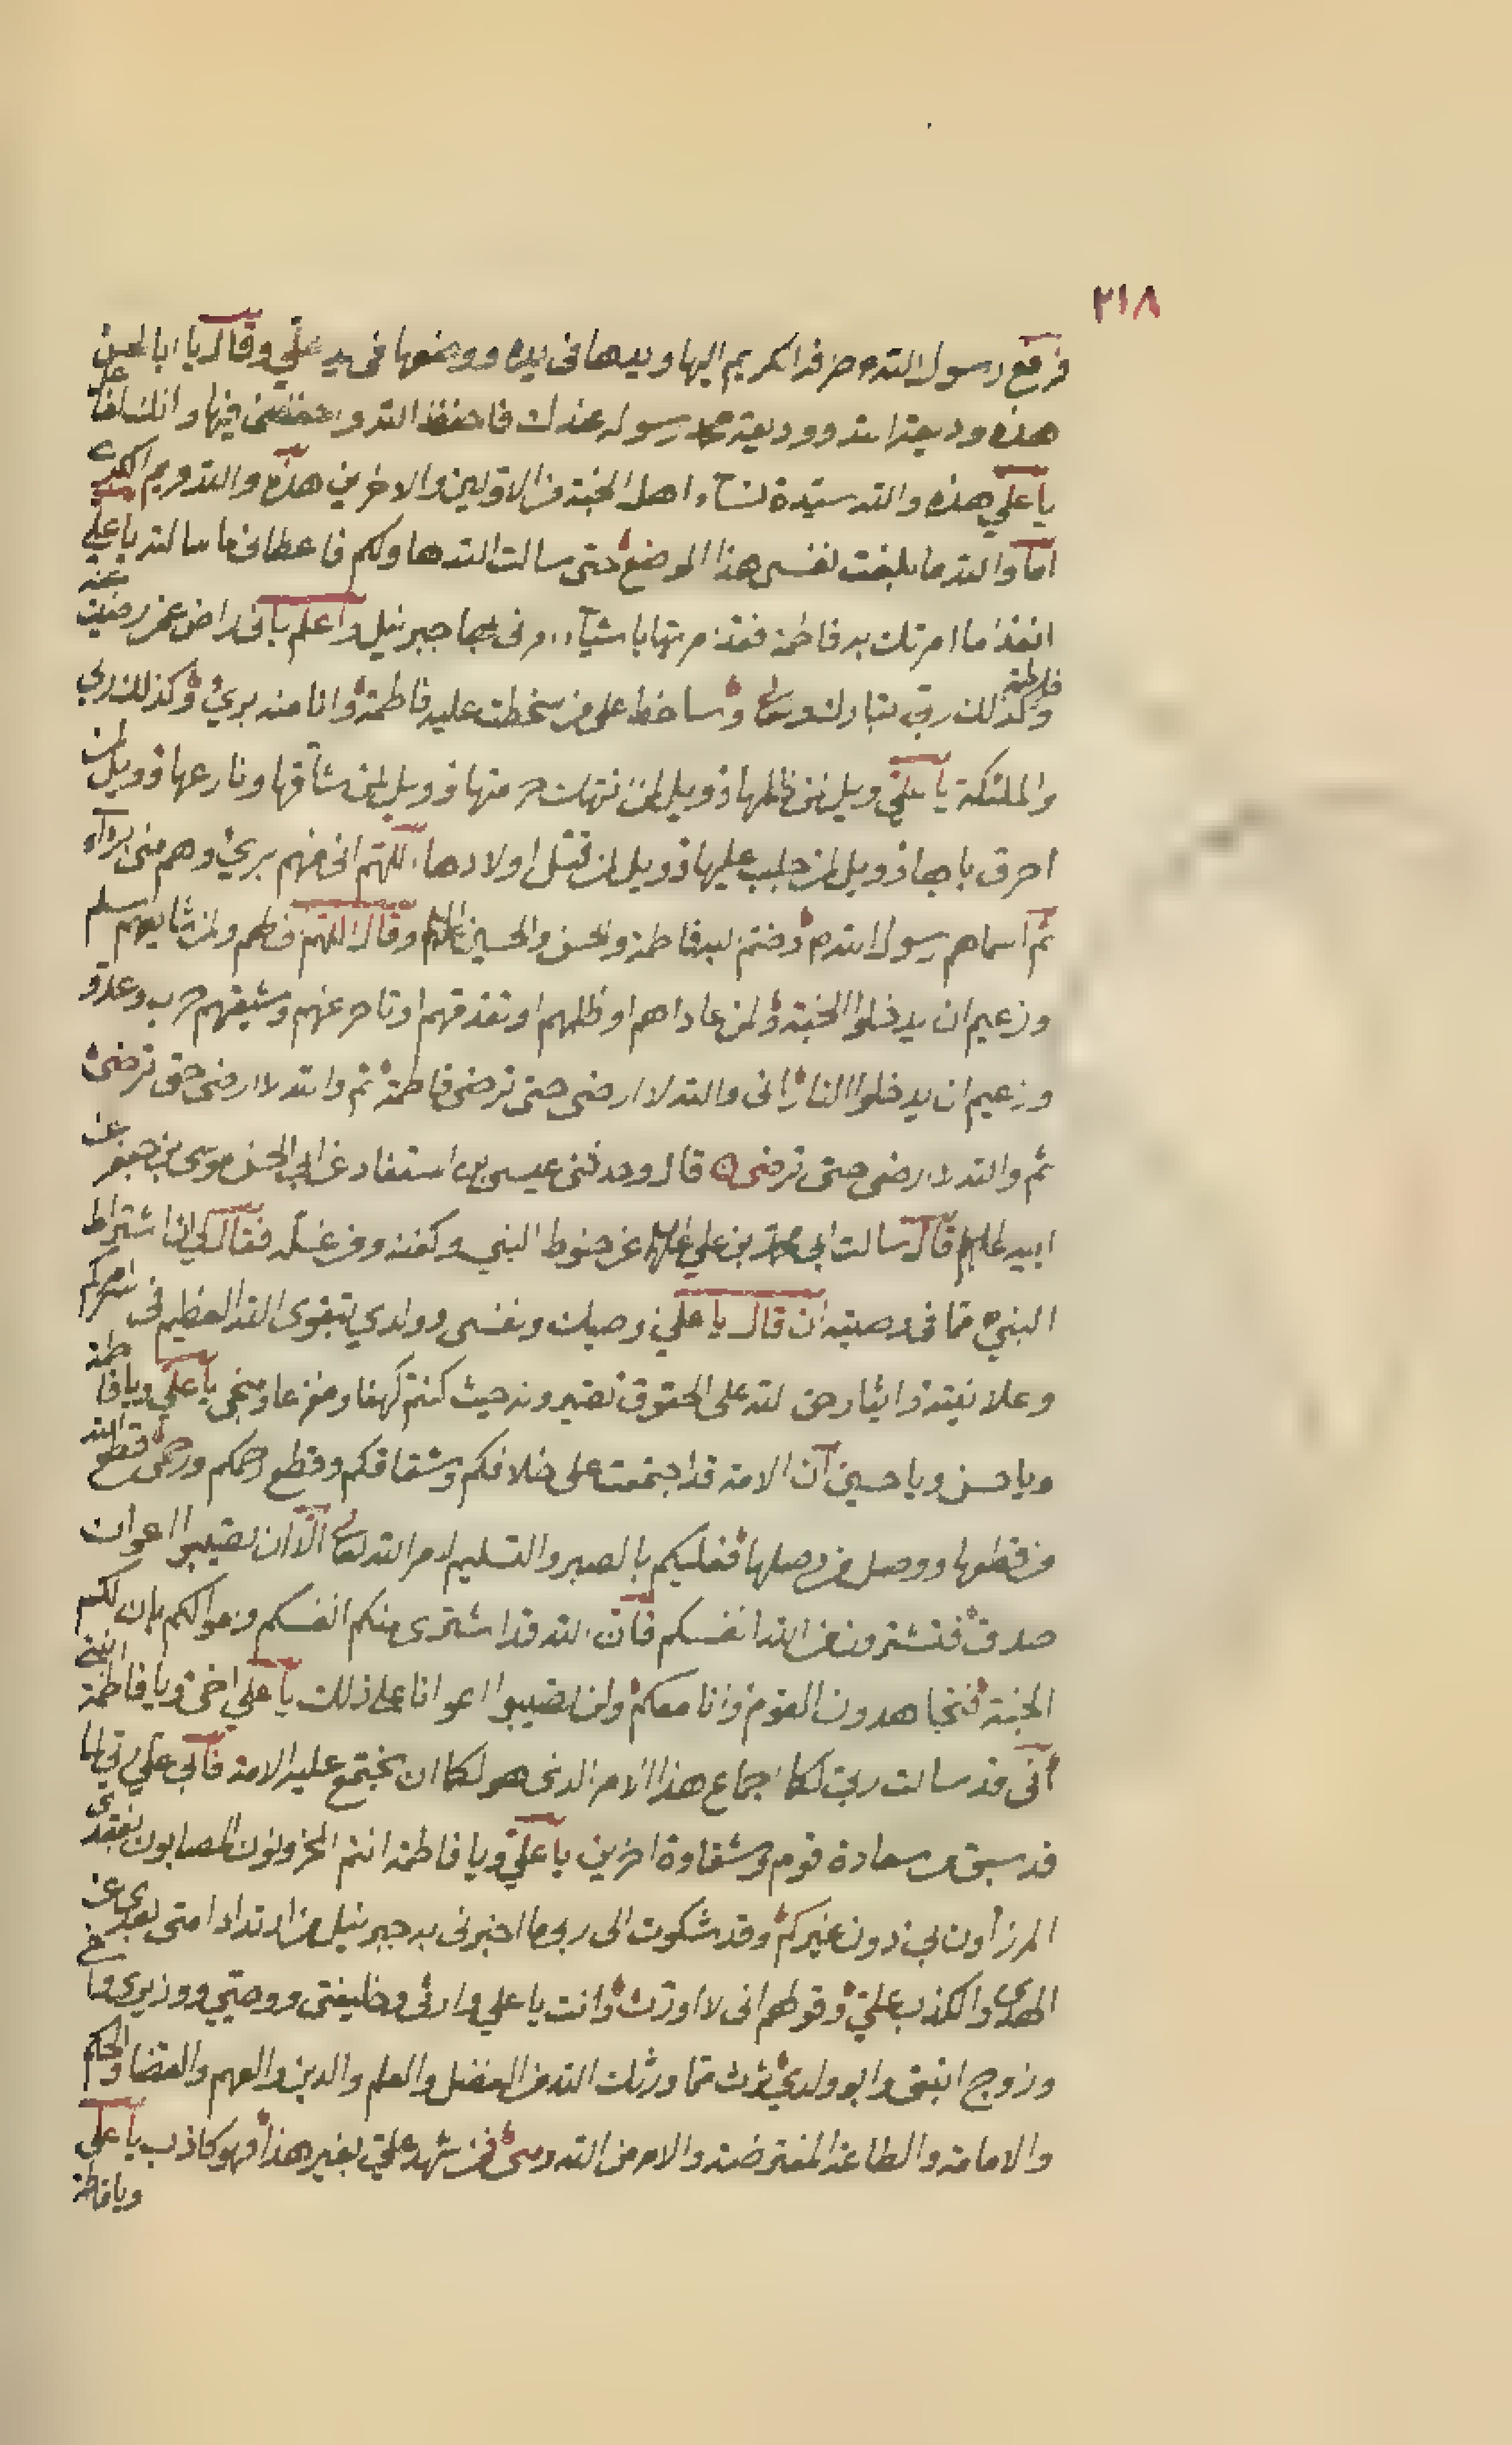 ٢١٨
فرفع رسول الله ص رأسه الكريم اليها ويدها في يده ووضعها في يد علي وقال يا ابا الحسن
هذه وديعة الله ووديعة محمد رسوله عندك فاحفظ الله واحفظني فيها وانك لفاعل
يا علي هذه والله سيدة نساء اهل الجنة من الاولين والاخرين هذه والله مريم الكبرى
اما والله ما بلغت نفسي هذا الموضع حتى سالت الله لها ولكم فاعطاني ما سالته يا علي
انفذ ما امرتك به فاطمة فقد امرتها باشياء امرني بها جبرئيل واعلم يا علي اني راض عمن رضيت عنه
فاطمة وكذلك ربي تبارك وتعالى وساخط على من سخطت عليه فاطمة وانا منه بريء وكذلك ربي
والملئكة يا علي ويل لمن ظلمها وويل لمن انتهك حرمتها وويل لمن شاقها ونازعها وويل لمن
احرق بابها وويل لمن جلب عليها وويل لمن قتل اولادها اللهم اني منهم بريء وهم مني براء
ثم اسماهم رسول الله ص وضم اليه فاطمة والحسن والحسين عليهم السلام وقال اللهم اني لهم ولمن شايعهم سلم
وزعيم ان يدخلوا الجنة ولمن عاداهم او ظلمهم او تقدمهم او تاخر عنهم وشيعتهم حرب وعدو
وزعيم ان يدخلوا النار اني والله لا ارضى حتى ترضى فاطمة ثم والله لا ارضى حتى ترضى
ثم والله لا ارضى حتى ترضى قال وحدثني عيسى بن استفاد عن ابي الحسن موسى بن جعفر عن
ابيه عليهم السلام قال سالت ابي محمد بن علي عليهم السلام عن حنوط النبي وكفنه ومن غسله فقال لي انما اشترط
النبي ص مما في وصيته ان قال يا علي اوصيك ونفسي وولدي بتقوى الله العظيم في سركم
وعلانيته وايثار حق الله على الحقوق تصيرونه حيث كنتم كهفا ومفزعا ومنجى يا علي ويا فاطمة
ويا حسن ويا حسين ان الامة قد اجتمعت على خلافكم وشقاقكم وقطع رحمكم ورحمي قطع الله
من قطعها ووصل من وصلها فعليكم بالصبر والتسليم لامر الله تعالى الا ان تصيبوا اعوان
صدق فتشترون من الله انفسكم فان الله قد اشترى منكم انفسكم واموالكم بان لكم
الجنة فتجاهدون القوم وانا معكم ولن تصيبوا اعوانا على ذلك يا علي اخي ويا فاطمة ابنتي
اني قد سالت ربي لكما اجماع هذا الامر الذي هو لكما ان يجتمع عليه الامة فابى علي ربي لما
قد سبق من سعادة قوم وشقاوة اخرين يا علي ويا فاطمة انتم المحزونون المصابون بفقدي
المرزأون بي دون غيركم وقد شكوت الى ربي ما اخبرني به جبرئيل من ارتداد امتي بعدي عن
الهدى والكذب علي وقولهم اني لا اورث وانت يا علي وارثي وخليفتي ووصيي ووزيري واخي
وزوج ابنتي وابو ولدي ترث مما ورثك الله من الفضل والعلم والدين والفهم والقضا والحكم
والامامة والطاعة المفترضة والامر من الله ومني فمن شهد علي بغير هذا فهو كاذب يا علي
ويا فاطمة